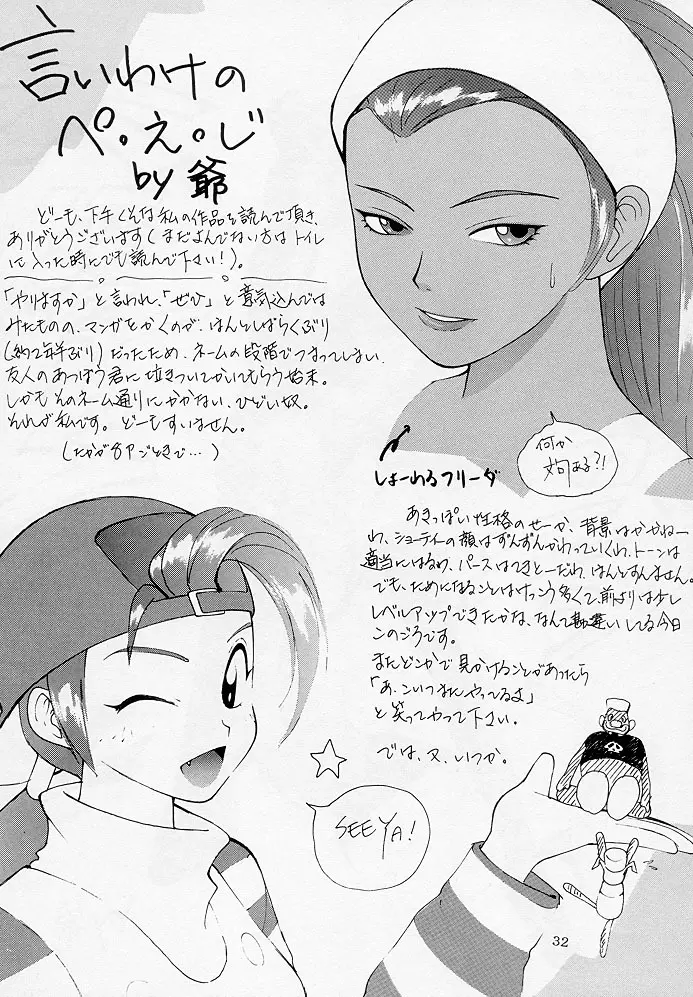 言いわけの
ぺ。え。じ
by 爺
どーも、下手くそな私の作品を読んで頂き
ありがとうございます(まだよんでない方はトイレ
に入った時にでも読んで下さい!)。
「やりますか」と言われ、「ぜひ」と意気込んでは
みたものの、マンガをかくのが、ほんとしばらくぶり
(約2年半ぶり)だったため、ネームの段階でつまってしまい、
友人のあっぽう君に泣きついてかいてもらう始末。
しかもそのネーム通りにかかない、ひどい奴。
それが私です。どーもすいません。
(たかが8Pごときで…)
しょーわるフリーダ
何か
文句ある?!
あきっぽい性格のせーか、背景はかかねー
わ、ショーティーの顔はずんずんかわっていくわ、トーンは
適当にはるわ、パースはてきとーだわ、ほんとすんません。
でも、ためになることはけっこう多くて、前よりは少し
レベルアップできたかな、なんて勘違いしてる今日
このごろです。
またどこかで見かけることがあったら
「あ、こいつまたやってるよ」
と笑ってやって下さい.
では、又、いつか。
SEE YA!
32